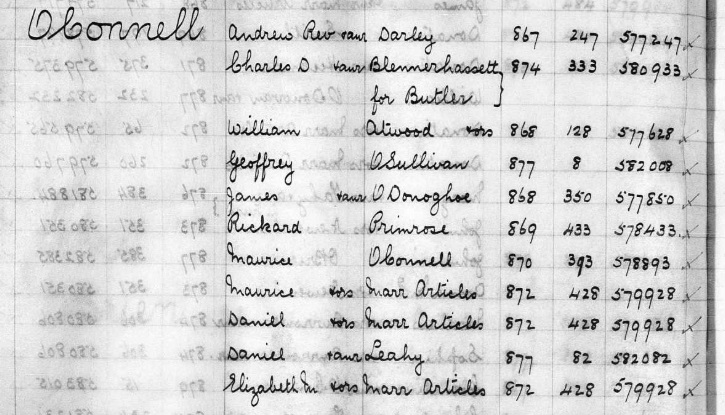 OConnell Andrew Rev & anr Darley 867 247 577247
Charles D & anr Blennerhassett 874 333 580933
for Butler
William Atwood & ors 868 128 577628
Geoffrey OSullivan 877 8 582008
James & anr ODonoghoe 868 350 577850
Rickard Primrose 869 433 578433
Maurice OConnell 870 393 578893
Maurice & ors Marr Articles 872 428 579928
Daniel & ors Marr Articles 872 428 579928
Daniel & anr Leahy 877 82 582082
Elizabeth M & ors Marr Articles 872 428 579928